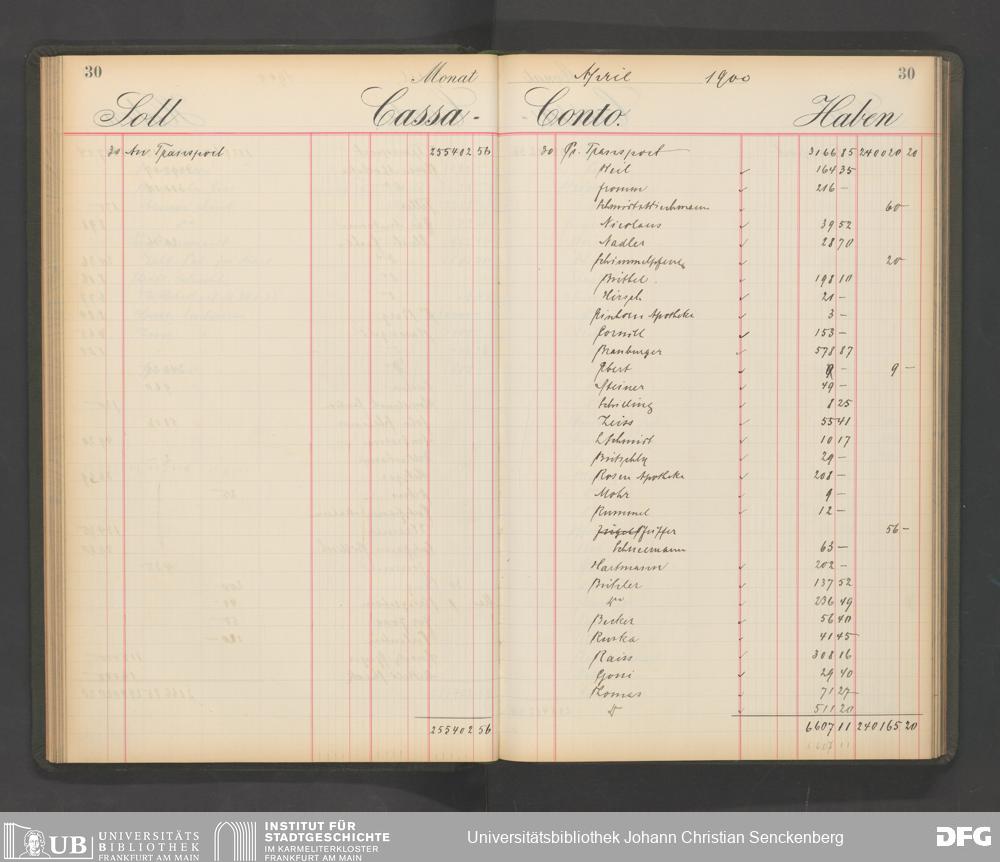 30
Monat
Soll
Cassa-
30 An Transport 255402 56
255402 56
April 1900
30
Conto.
Haben
30 Pr. Transport 3166 85 240020 20
Weil 164 35
Fromm 216 –
60 –
Nicolaus 39 52
Nadler 28 70
Schimmelpfeng 20 –
Brittel 198 10
Hirsch 21 –
Einhorn Apotheke 3 –
Cornill 153 –
Branburger 578 87
Ebert 9 –
Steiner 49 –
Schilling 8 25
Zeiss 55 41
L Schmidt 10 17
Britschly 29 –
Rosen Apotheke 208 –
Mohr 9 –
Rummel 12 –
56 –
Schuermann 63 –
Hartmann 202 –
Britzler 137 52
do 236 49
Becker 56 40
Ruska 41 45
Raiss 308 16
29 40
Thomas 71 27
do 511 20
6607 11 240165 20
UB UNIVERSITÄTS
BIBLIOTHEK
FRANKFURT AM MAIN
INSTITUT FÜR
STADTGESCHICHTE
IM KARMELITERKLOSTER
FRANKFURT AM MAIN
Universitätsbibliothek Johann Christian Senckenberg
DFG